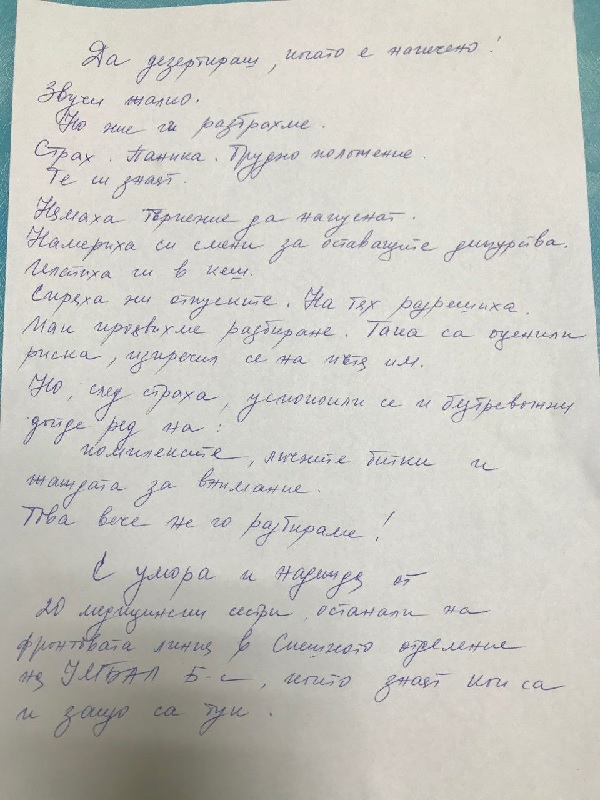 Да дезертираш, когато е напечено!
Звучи жалко.
Но ние ги разбрахме.
Страх. Паника. Трудно положение.
Те си знаят.
Нямаха търпение да напуснат.
Намериха си смени за оставащите дежурства.
Платиха ги в кеш.
Спряха ни отпуските. На тях разрешиха.
Май проявихме разбиране. Така са оценили
риска, изпречил се на пътя им.
Но, след страха, успокоили се и безтревожни
дойде ред на:
комплексите, личните битки и
жаждата за внимание.
Това вече не го разбираме!
С умора и надежда от
20 медицински сестри, останали на
фронтовата линия в Спешното отделение
на УМБАЛ Б-с, които знаят кои са
и защо са тук.